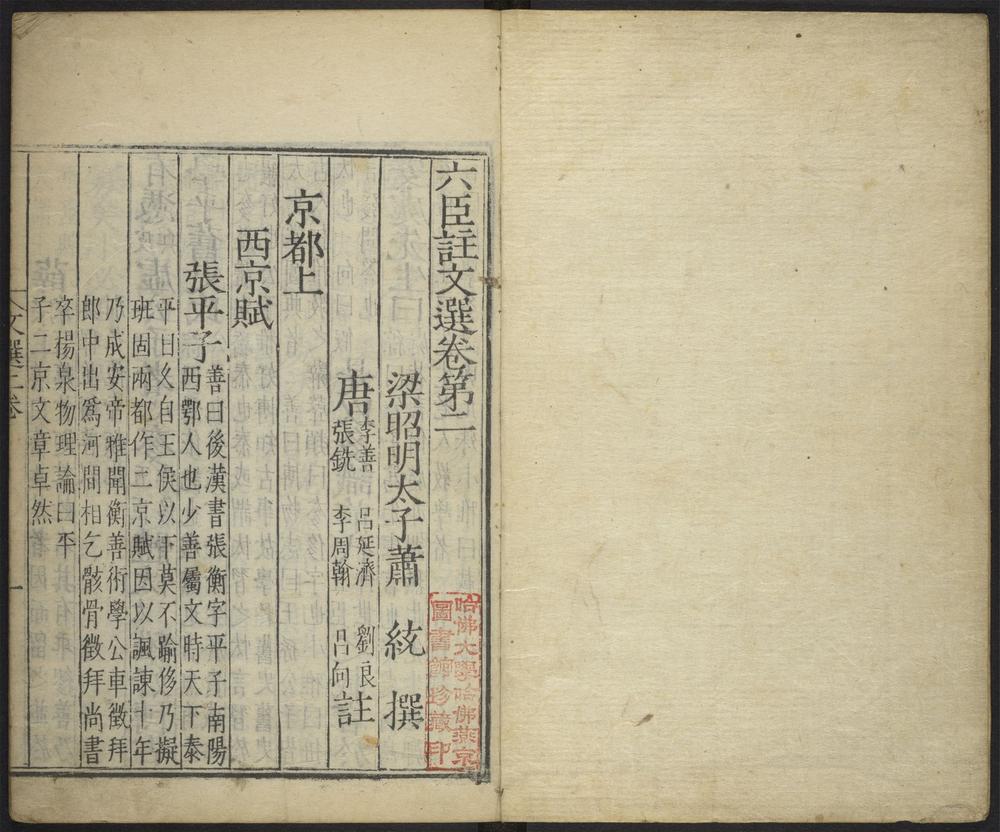 六臣註文選卷第二
梁昭明太子蕭統撰
唐李善呂延濟劉良
張銑李周翰呂向註
京都上
西京賦
張平子
善曰後漢書張衡字平子南陽
西鄂人也少善屬文時天下泰
平日久自王侯以下莫不踰侈乃擬
班固兩都作二京賦因以諷諫十年
乃成安帝雅聞衡善術學公車徵拜
郎中出爲河間相乞骸骨徵拜尚書
卒楊泉物理論曰平
子二京文章卓然
文選二卷
一
哈佛大學哈佛燕京
圖書館珍藏印